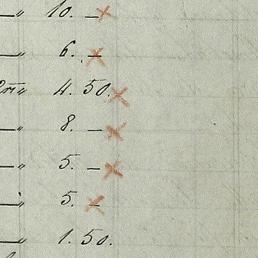 —" 10. —
—" 6. —
" 4. 50.
—" 8. —
—" 5. —
" 5. —
—" 1. 50.